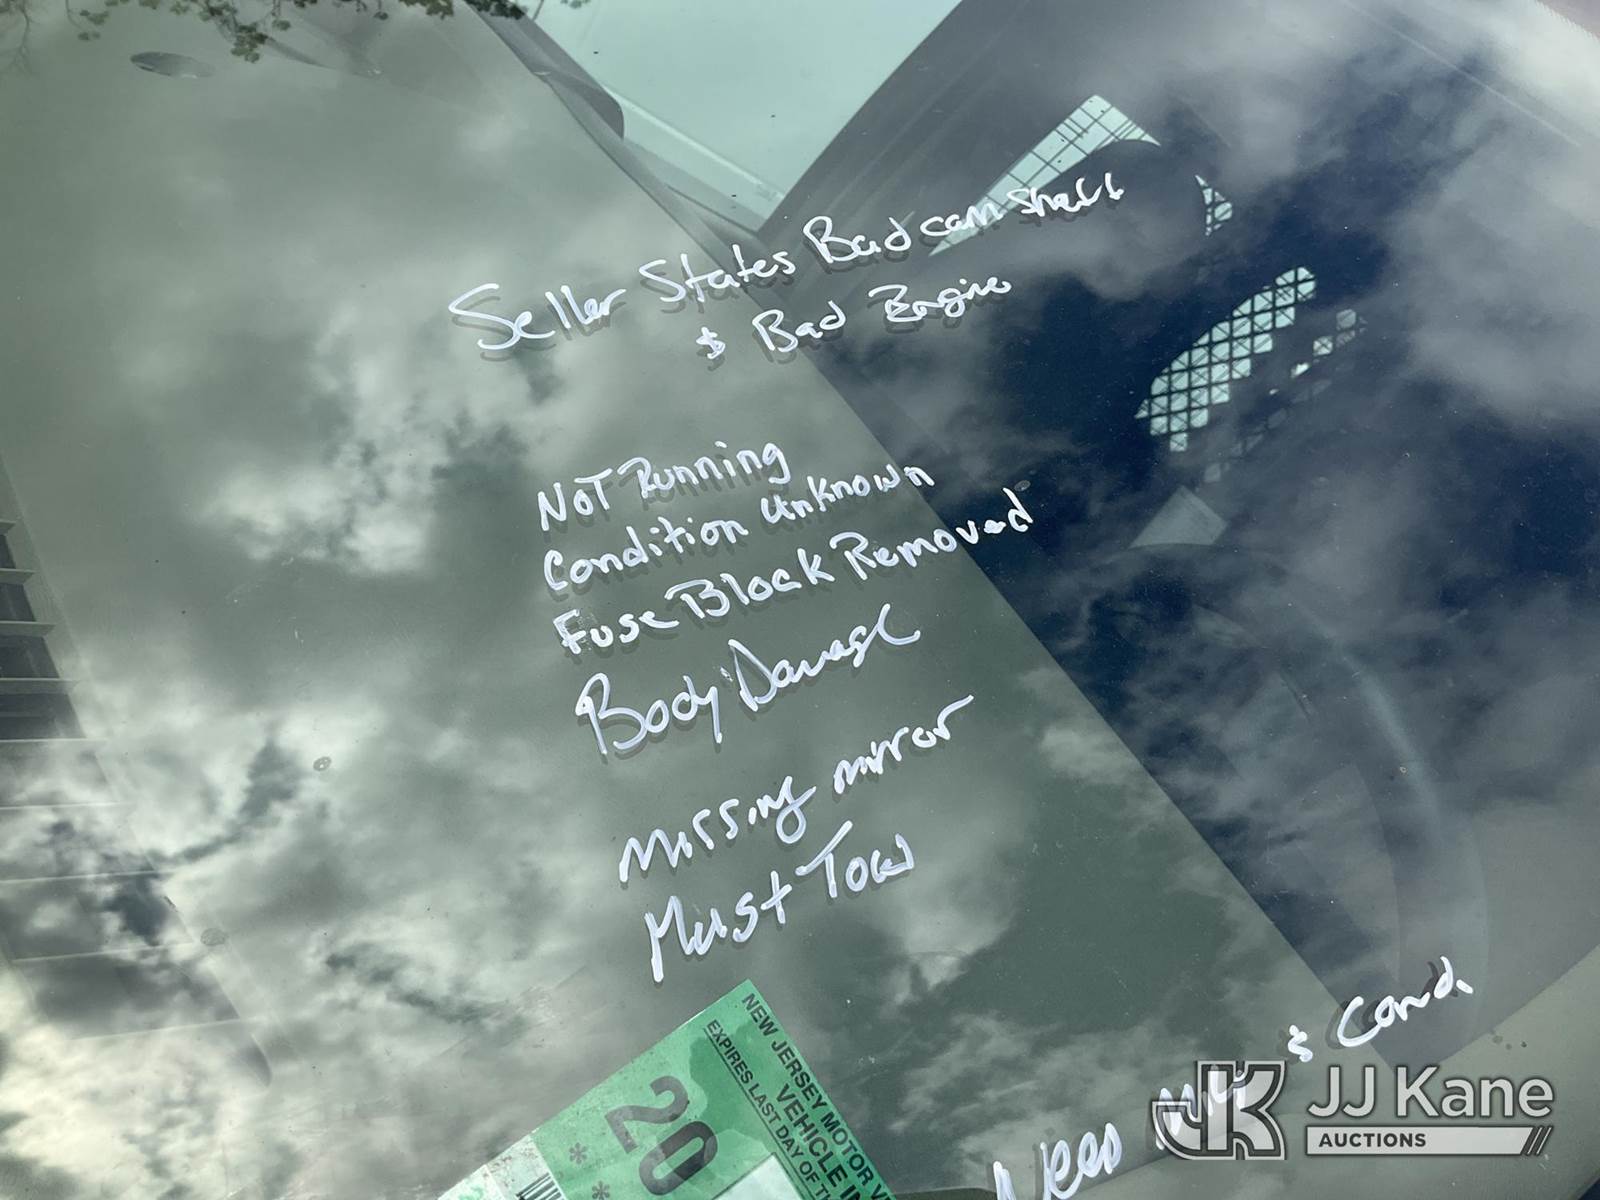 Seller States Bad cam shaft
& Bad Engine
NOT Running
Condition Unknown
Fuse Block Removed
Body Damage
Missing mirror
Must Tow
Need & Cond.
NEW JERSEY MOTOR V
VEHICLE IN
EXPIRES LAST DAY OF T
* 20 *
JJ Kane
AUCTIONS